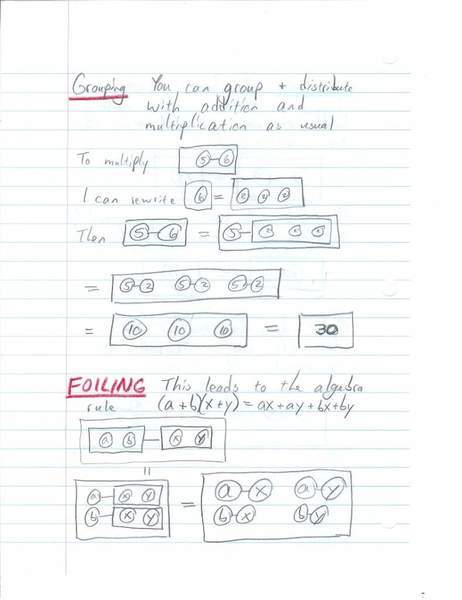 Grouping You can group + distribute
with addition and
multiplication as usual
To multiply 5 6
I can rewrite 6 = 2 2 2
Then 5 6 = 5 2 2 2
= 5 2 5 2 5 2
= 10 10 10 = 30
FOILING This leads to the algebra
rule (a+b)(x+y) = ax+ay+bx+by
a b x y
=
a x y
b x y
= a x a y
b x b y